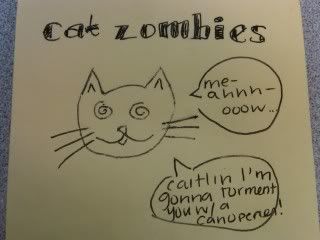 cat zombies
me-
ahhh-
ooow...
caitlin I'm
gonna torment
you w/ a
canopener!